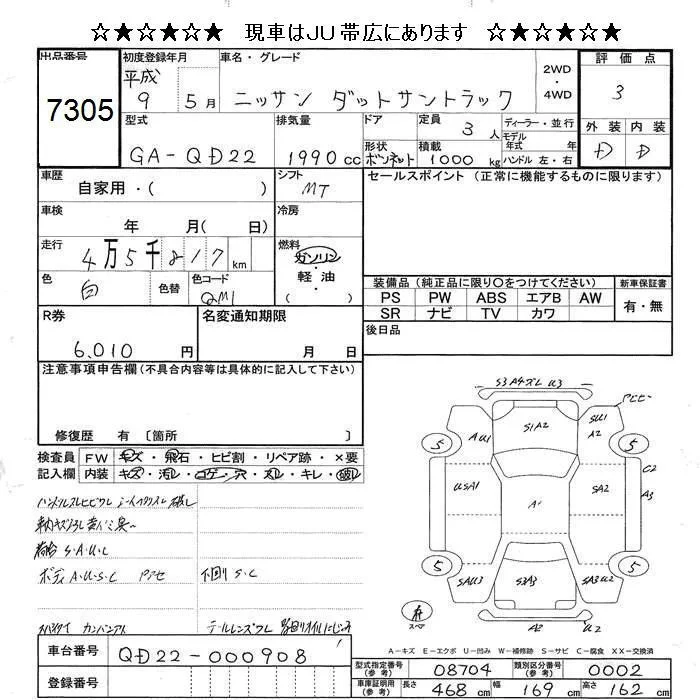 ☆★☆★☆★ 現車はJU帯広にあります ☆★☆★☆★
出品番号
7305
初度登録年月
平成
9 5月
車名・グレード
ニッサン ダットサントラック
2WD
・
4WD
評価点
3
外装 内装
D D
型式
GA-QD22
排気量
1990cc
ドア
形状
ボンネット
定員
3人
積載
1000kg
ディーラー・並行
モデル
年式 年
ハンドル 左・右
車歴
自家用・( )
シフト
MT
セールスポイント (正常に機能するものに限ります)
車検
年 月( 日)
冷房
走行
4万5千817km
燃料
ガソリン
・
軽油
( )
色
白
色替
色コード
QM1
装備品 (純正品に限り○をつけてください)
PS PW ABS エアB AW
SR ナビ TV カワ
新車保証書
有・無
R券
6,010 円
名変通知期限
月 日
後日品
注意事項申告欄 (不具合内容等は具体的に記入して下さい)
修復歴 有 〔箇所 〕
検査員
記入欄
FW キズ・飛石・ヒビ割・リペア跡・×要
内装 キズ・汚レ・コゲ・穴・スレ・キレ・破レ
ボディ A・U・S・C
下回り S・C
S3 A4 ズレ U3
AU1
S1A2
SU1
A2
5
5
USA1
A1
SA2
C2
A3
5
5
SAU3
S3A3
SA3U2
A2
U2
スペア
A-キズ E-エクボ U-凹み W-補修跡 S-サビ C-腐食 XX-交換済
車台番号
QD22-000908
登録番号
型式指定番号
(参考)
08704
類別区分番号
(参考)
0002
車庫証明用
(参考)
長さ 468cm
幅 169cm
高さ 162cm